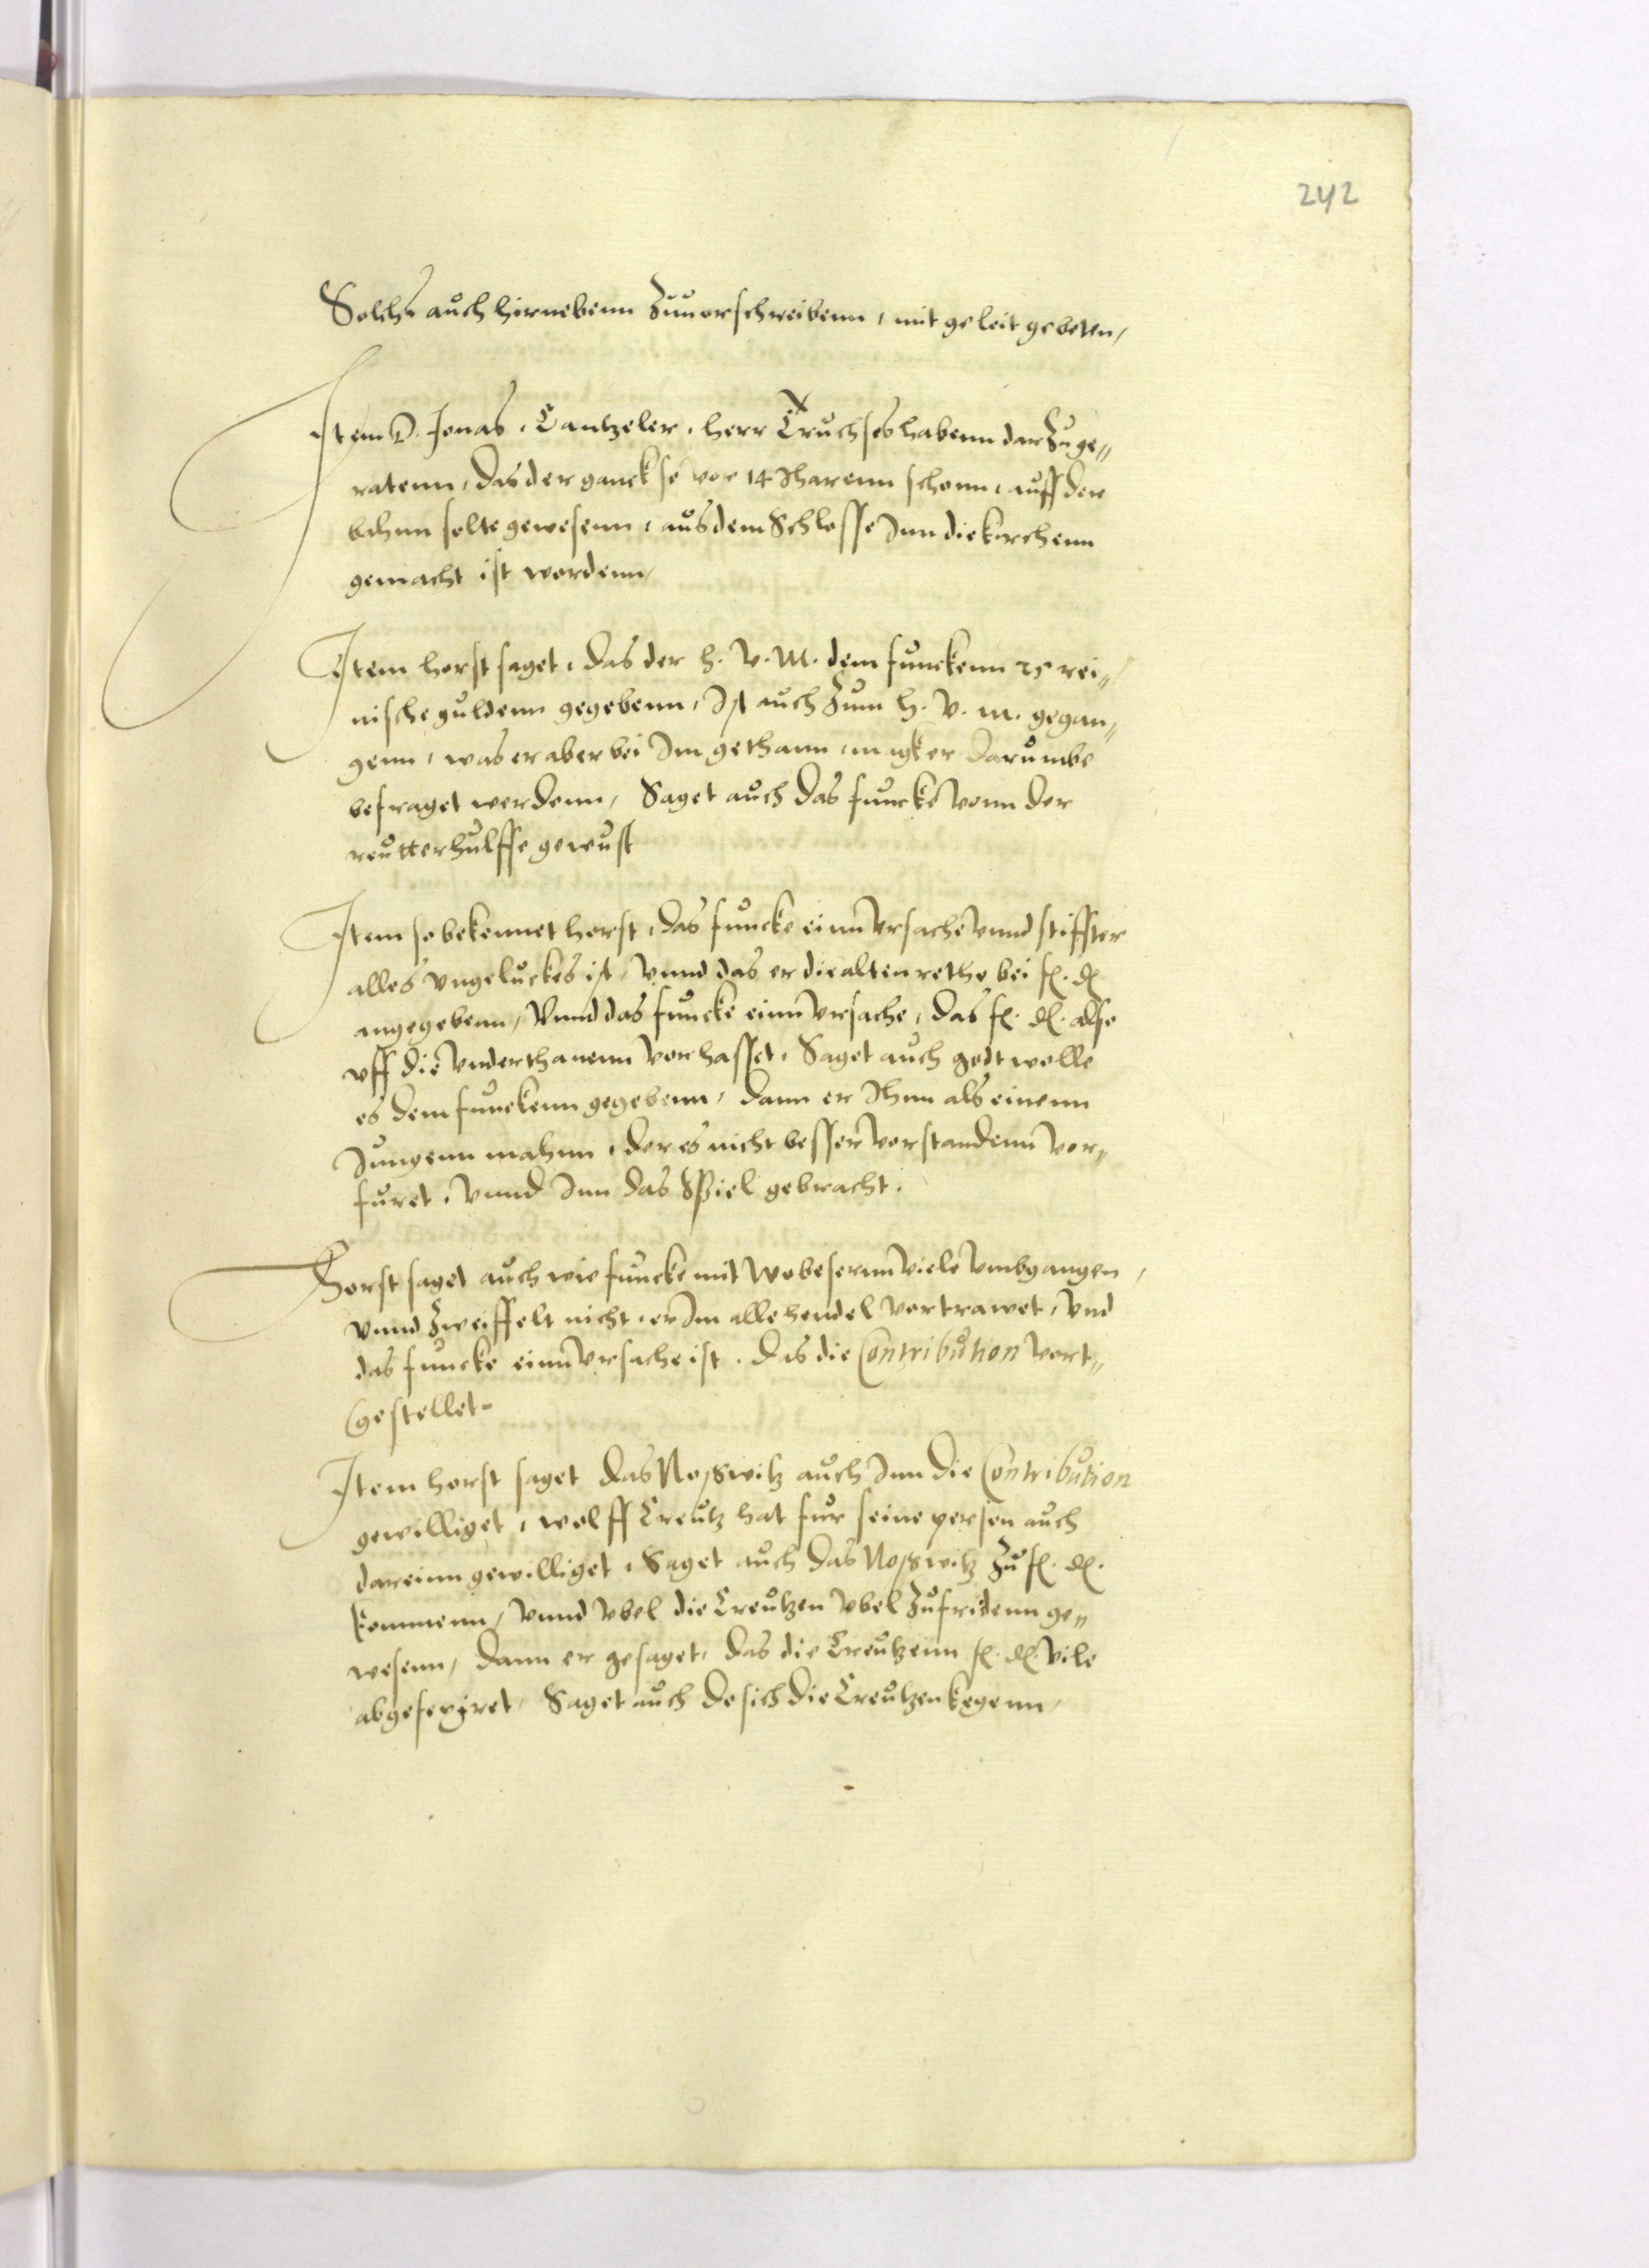 242
Solchs auch hirnebenn zuuorschreibenn, mit geleit gebeten,
Item D. Jonas, Cantzeler, herr Truchses habenn darzu ge„
ratenn, das der ganck so vor 14 Iharenn schonn, auff der
bahnn solte gewesenn, aus dem Schlosse Inn die kirchenn
gemacht ist wordenn,
Item horst saget, das der h. v. M. dem funckenn 25 rei„
nische guldenn gegebenn, Ist auch zum h. v. m. gegan„
genn, was er aber bei Im gethann, magk er darumbe
befraget werdenn, Saget auch das funcke vonn der
reutterhulffe gewust
Item so bekennet horst, das funcke einn vrsache vnnd stiffter
alles vngeluckes ist, vnnd das er die alten rethe bei f. d.
angegebenn, Vnnd das funcke einn vrsache, das f. d. also
vff die vnderthanenn vorhasset, Saget auch godt wolle
es dem funckenn gegebenn, dann er Ihnn als einenn
Jungenn mahnn, der es nicht besser vorstandenn vor„
furet, vnnd Inn das Spiel gebracht.
Horst saget auch wie funcke mit Wobesernn viele vmbgangen,
vnnd zweiffelt nicht, er Im alle hendel vortrawet, vnd
das funcke einn vrsache ist, das die Contribution vort„
gestellet
Item horst saget das Noßwitz auch Inn die Contribution
gewilliget, wolff Creutz hat fur seine person auch
dareinn gewilliget, Saget auch das Noßwitz zu f. d.
kommenn, vnnd vbel die Creutzen vbel zufridenn ge„
wesenn, dann er gesaget, das die Creutzenn f. d. vile
abgesexiret, Saget auch do sich die Creutzen kegenn,